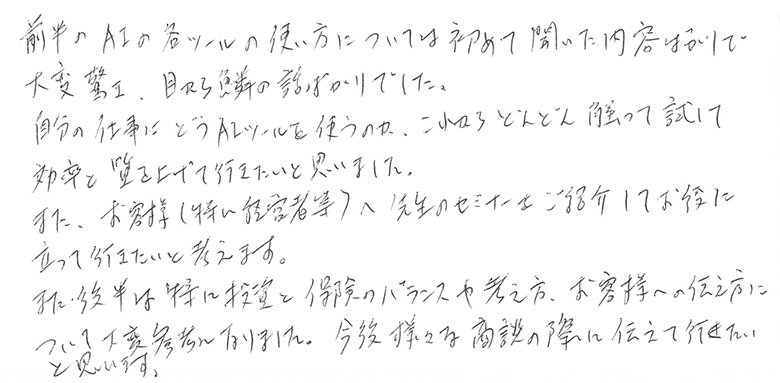 前半のAIの各ツールの使い方については初めて聞いた内容ばかりで
大変驚き、目から鱗の話ばかりでした。
自分の仕事にどうAIツールを使うのか、これからどんどん触って試して
効率と質を上げて行きたいと思いました。
また、お客様(特に経営者等)へ先生のセミナーをご紹介してお役に
立って行きたいと考えます。
また後半は特に投資と保険のバランスや考え方、お客様への伝え方に
ついて大変参考になりました。今後様々な商談の際に伝えて行きたい
と思います。